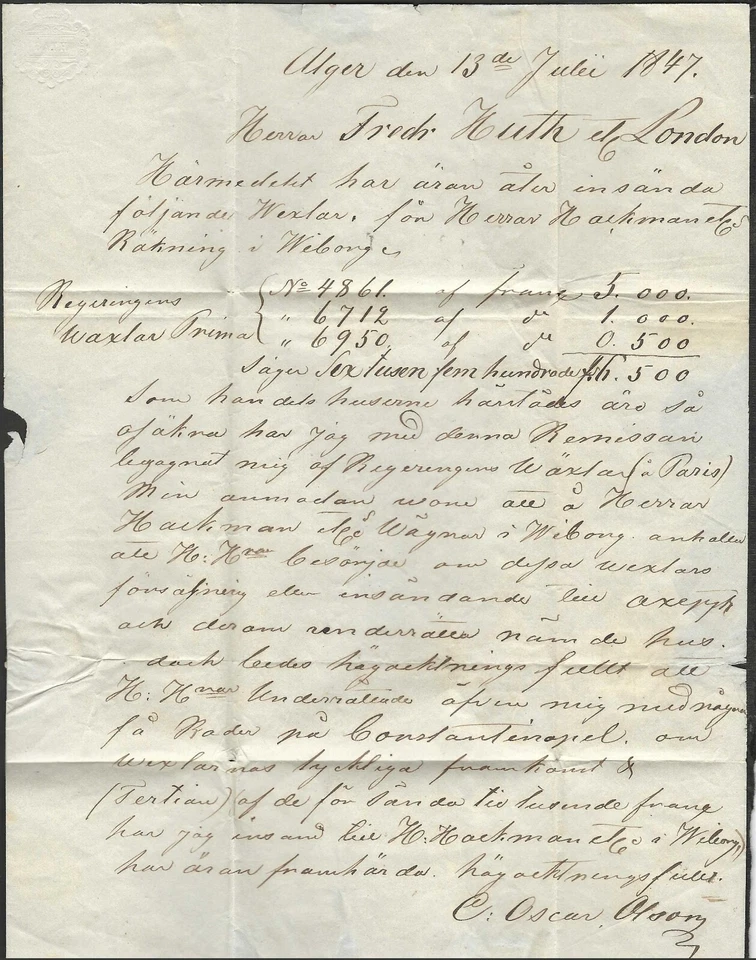 Alger den 13de Julii 1847.
Herrar Fredr Huth etC London
Härmedelst har äran åter insända
följande Wexlar, för Herrar Hackman etCo
Räkning i Wiborg
Regeringens Waxlar Prima
No 4861. af frang 5. 000.
" 6712 af do 1. 000.
" 6950. af do 0. 500
Säger Sex tusen fem hundrade fr 6. 500
Som handelshuserne härstädes äro så
osäkra har jag med denna Remissan
begagnat mig af Regeringens Wäxlar (å Paris)
Min anmodan wore att å Herrar
Hackman etCo Wägnar i Wiborg. anhålla
att H: Hrar besörjde om dessa wexlars
försäljning eller insändande till axept
och derom underrätta nämde hus.
dock bedes högacktningsfullt att
H: Hrar Underrättade äfven mig med några
få Rader på Constantinopel. om
Wexlarnas lyckliga framkomst &
(Tertian) af de för sända tio tusende frang
har jag insand till H: Hackman etCo i Wiborg,)
har äran framhärda. högacktningsfullt.
C: Oscar Olson